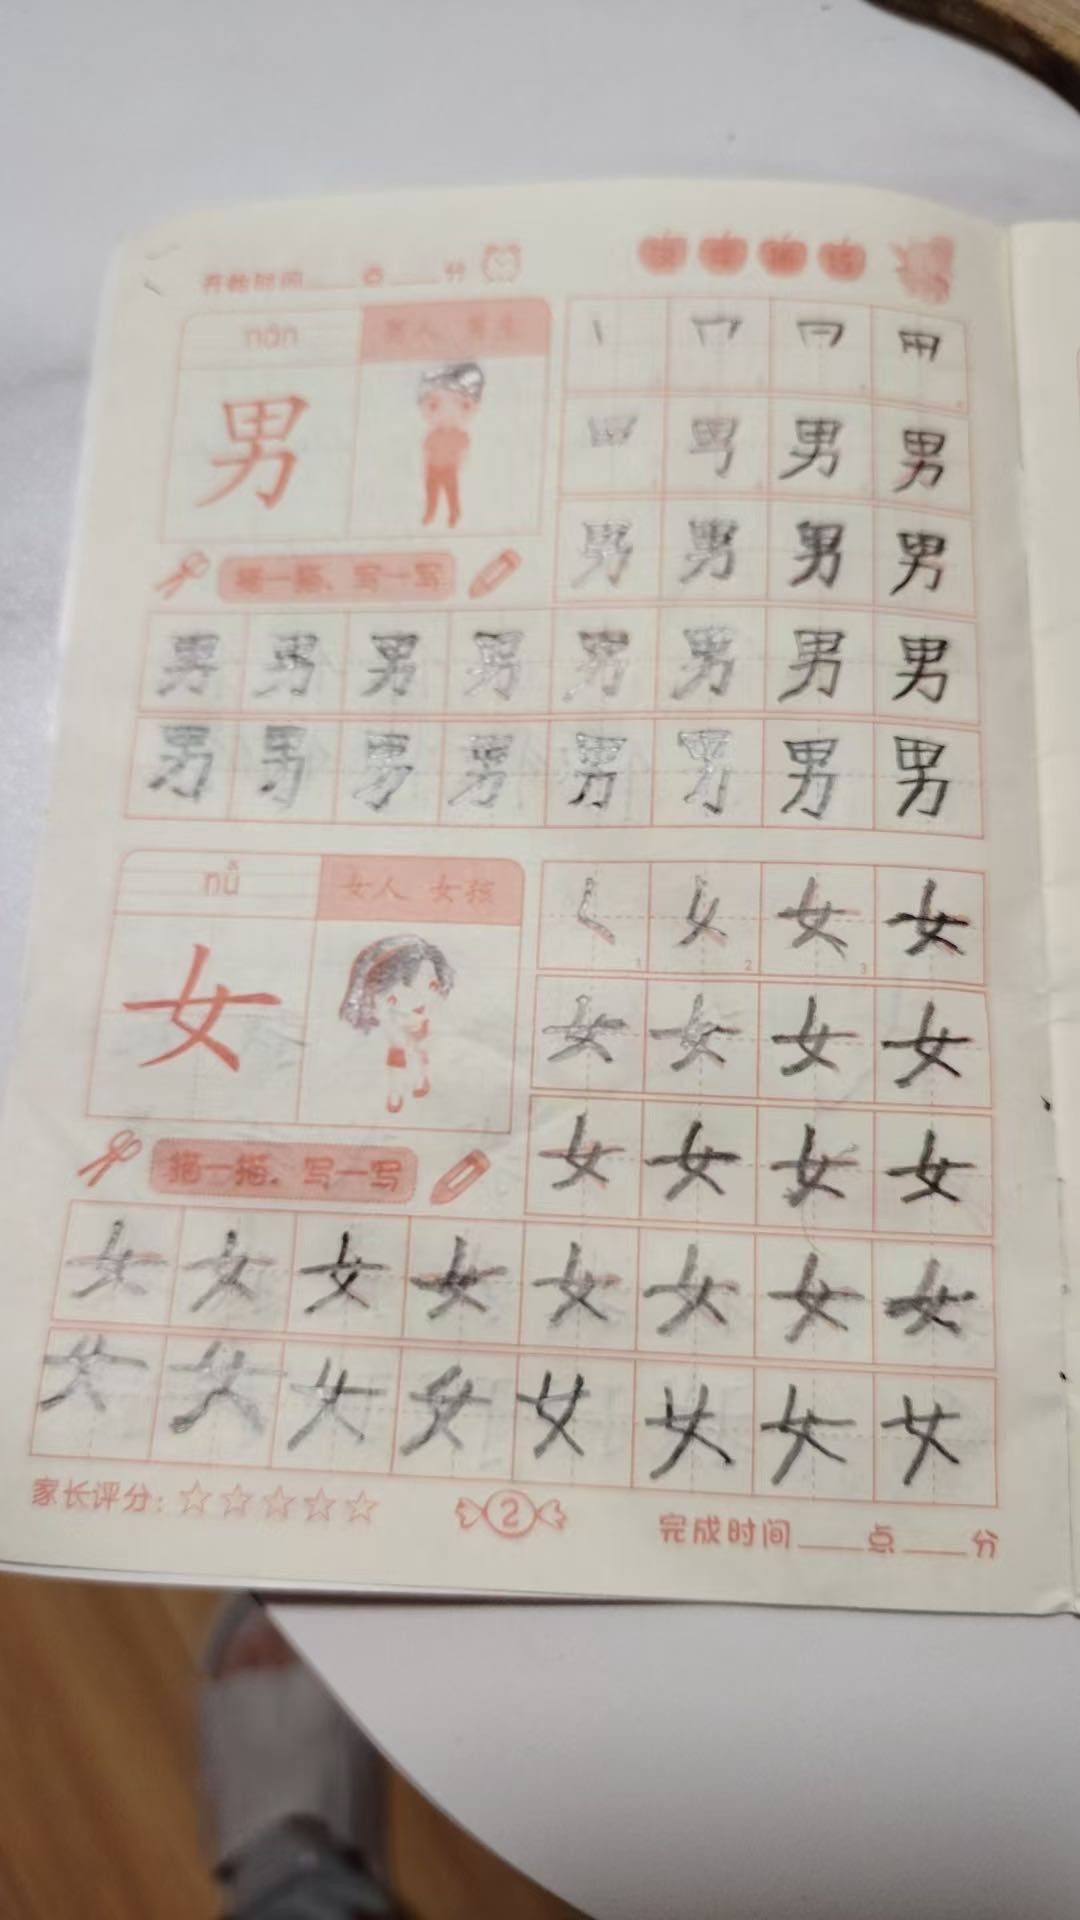 开始时间____点____分
nán
男人 男生
男
丨 冂 冃 用
田 男 男 男
男 男 男 男
描一描，写一写
男 男 男 男 男 男 男 男
男 男 男 男 男 男 男 男
nǚ
女人 女孩
女
1 2 3
女 女
女 女 女 女
女 女 女 女
描一描，写一写
女 女 女 女 女 女 女 女
女 女 女 女 女 女 女 女
家长评分：☆☆☆☆☆
2
完成时间____点____分